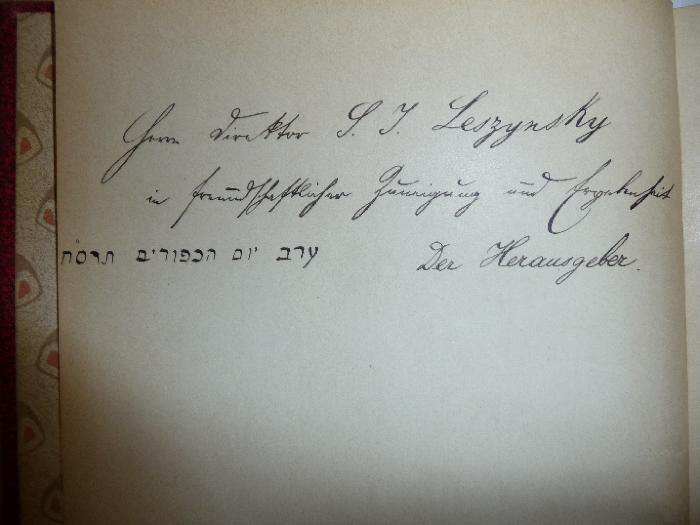 Herrn Direktor S. J. Leszynsky
in freundschaftlicher Zuneigung und Ergebenheit
ערב יום הכפורים תרס״ח
Der Herausgeber.